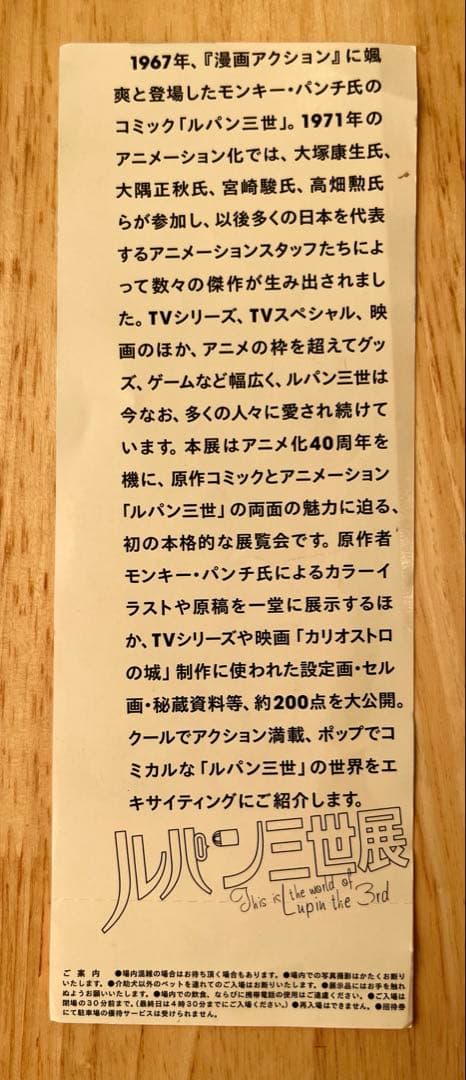 1967年、『漫画アクション』に颯
爽と登場したモンキー・パンチ氏の
コミック「ルパン三世」。1971年の
アニメーション化では、大塚康生氏、
大隅正秋氏、宮崎駿氏、高畑勲氏
らが参加し、以後多くの日本を代表
するアニメーションスタッフたちによ
って数々の傑作が生み出されまし
た。TVシリーズ、TVスペシャル、映
画のほか、アニメの枠を超えてグッ
ズ、ゲームなど幅広く、ルパン三世は
今なお、多くの人々に愛され続けて
います。本展はアニメ化40周年を
機に、原作コミックとアニメーション
「ルパン三世」の両面の魅力に迫る、
初の本格的な展覧会です。原作者
モンキー・パンチ氏によるカラーイ
ラストや原稿を一堂に展示するほ
か、TVシリーズや映画「カリオストロ
の城」制作に使われた設定画・セル
画・秘蔵資料等、約200点を大公開。
クールでアクション満載、ポップでコ
ミカルな「ルパン三世」の世界をエ
キサイティングにご紹介します。
ルパン三世展
This is the world of
Lupin the 3rd
ご案内 ●場内混雑の場合はお待ち頂く場合もあります。●場内での写真撮影はかたくお断り
いたします。●介助犬以外のペットを連れてのご入場はお断りいたします。●展示品にはお手を触れ
ぬようお願いいたします。●場内での飲食、ならびに携帯電話の使用はご遠慮ください。●ご入場は
閉場の30分前まで。(最終日は4時30分までにご入場ください。)●再入場はできません。●招待券
にて駐車場の優待サービスは受けられません。